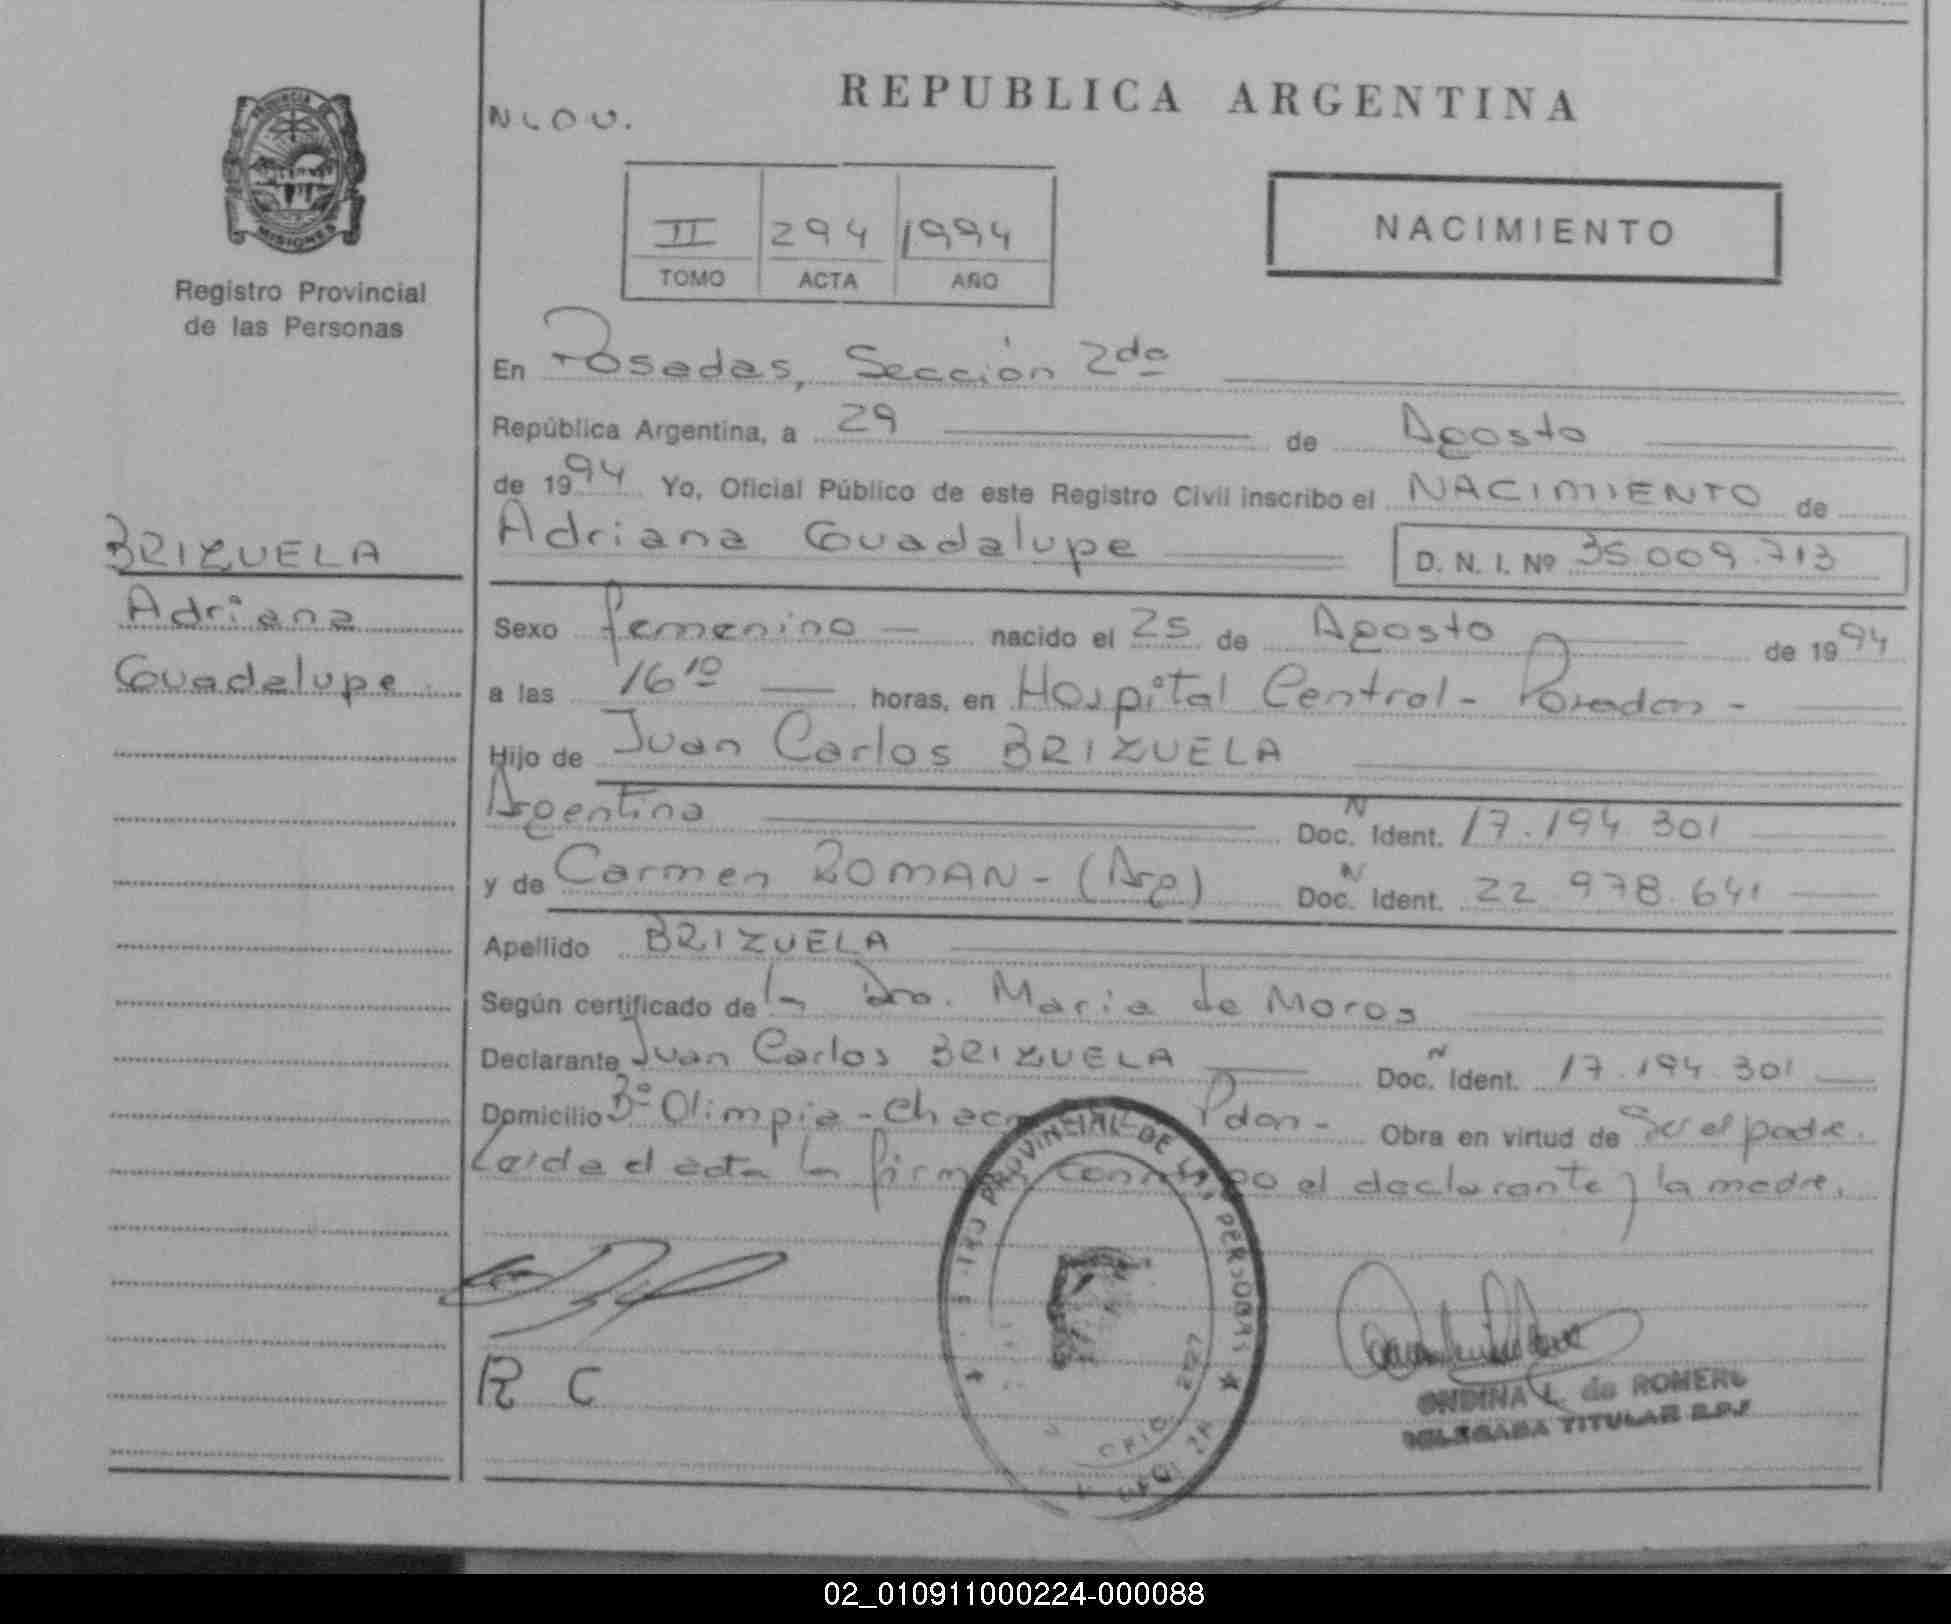 PROVINCIA DE
MISIONES
Registro Provincial
de las Personas
BRIZUELA
Adriana
Guadalupe
REPUBLICA ARGENTINA
II 294 1994
TOMO ACTA AÑO
NACIMIENTO
En Posadas, Sección 2da
República Argentina, a 29 de Agosto
de 1994 Yo, Oficial Público de este Registro Civil inscribo el NACIMIENTO de
Adriana Guadalupe D. N. I. Nº 35.009.713
Sexo femenino nacido el 25 de Agosto de 1994
a las 16 10 horas, en Hospital Central - Posadas -
Hijo de Juan Carlos BRIZUELA
Argentina Doc. Ident. 17.194.301
y de Carmen ROMAN - (Arg) Doc. Ident. 22.978.641
Apellido BRIZUELA
Según certificado de la Dra. Maria de Moros
Declarante Juan Carlos BRIZUELA Doc. Ident. 17.194.301
Domicilio Bº Olimpia - Pdas - Obra en virtud de Ser el padre.
Leída el acta la conmigo el declarante y la madre.
PROVINCIAL DE LAS PERSONAS
R C
ONDINA L. de ROMERO
DELEGADA TITULAR R.P.
02_010911000224-000088